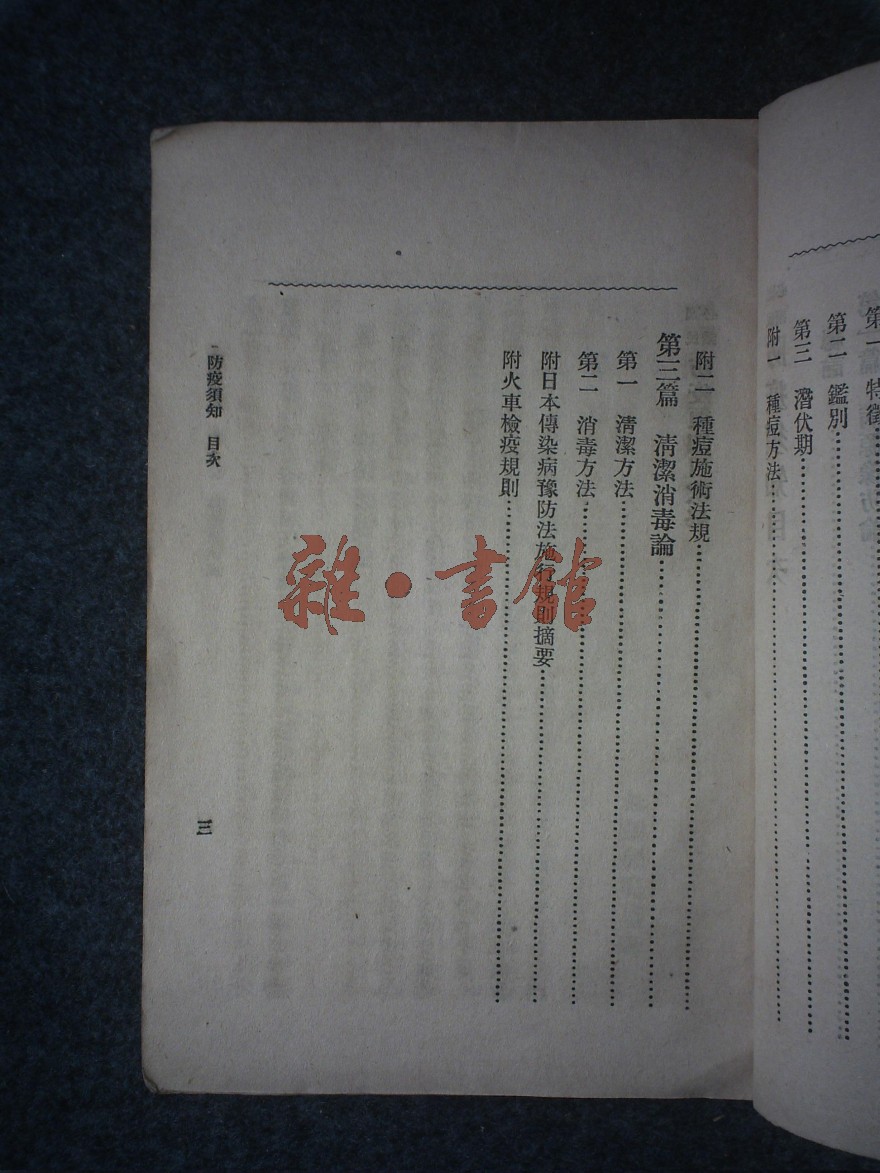 第一 特徵
第二 鑑別
第三 潛伏期
附一 種痘方法
附二 種痘施術法規
第三篇 清潔消毒論
第一 清潔方法
第二 消毒方法
附日本傳染病豫防法施行規則摘要
附火車檢疫規則
防疫須知 目次
三
雜·書館